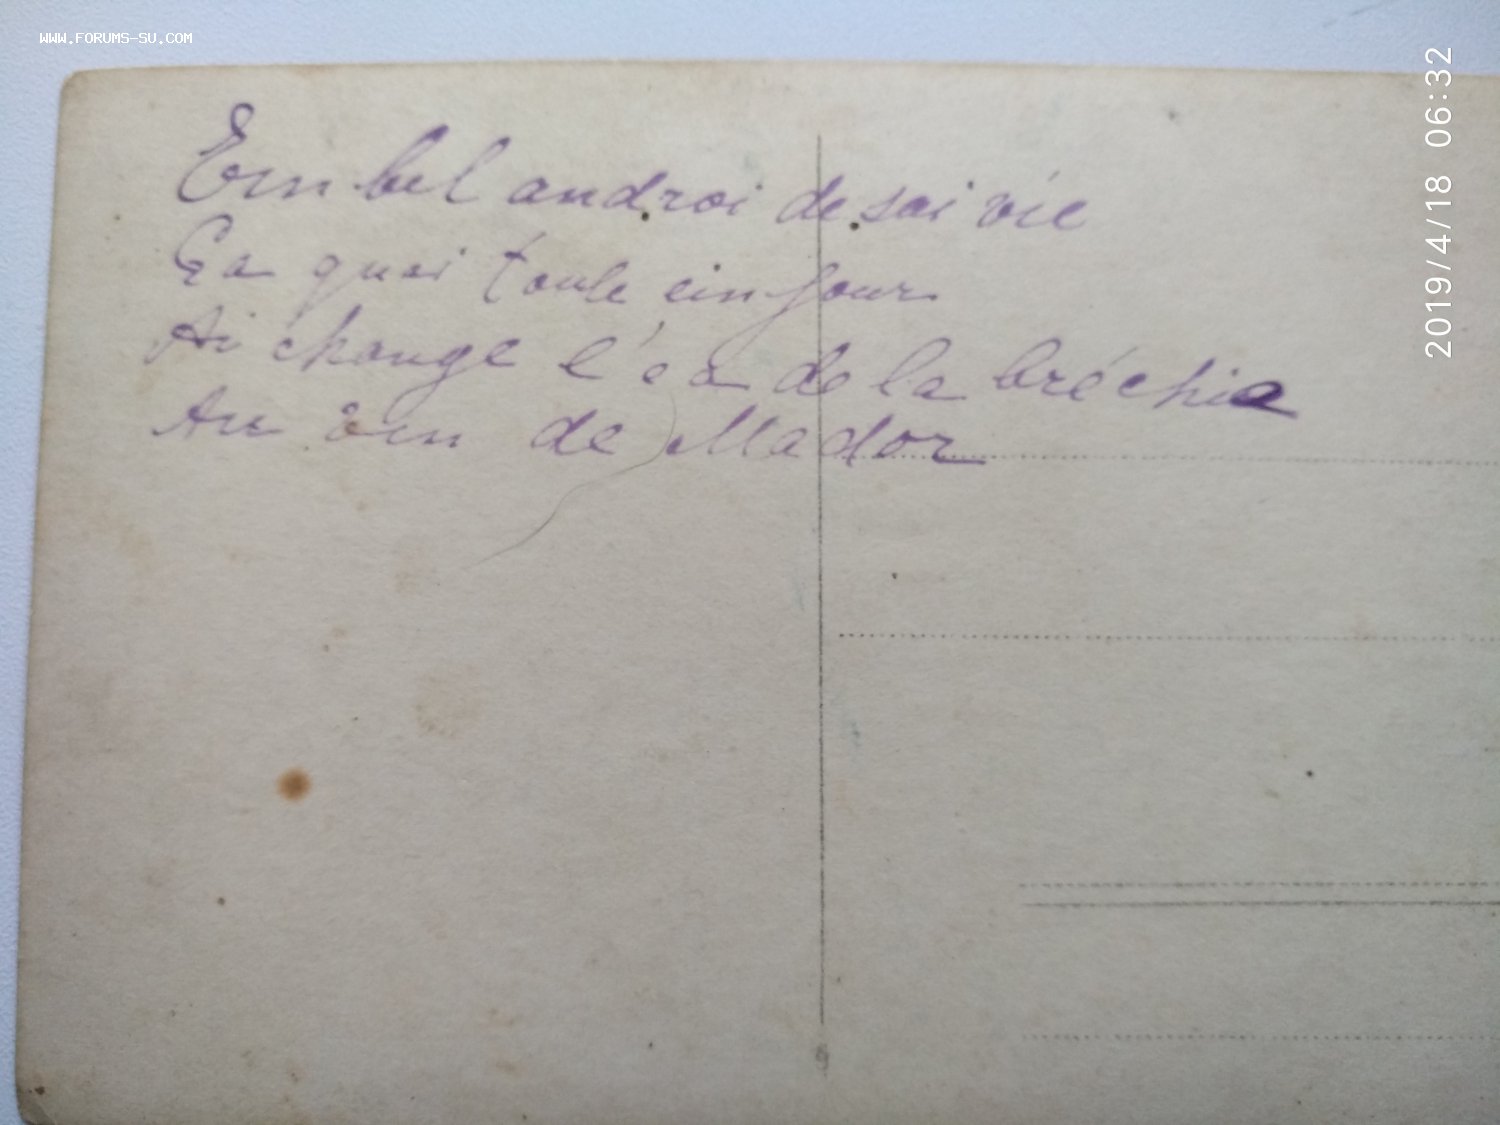 WWW.FORUMS-SU.COM
2019/4/18 06:32
Ein bel androi de sai vie
Ça quai toule ein jour
Ai change l'ea de la bréchia
Au ein de Mador